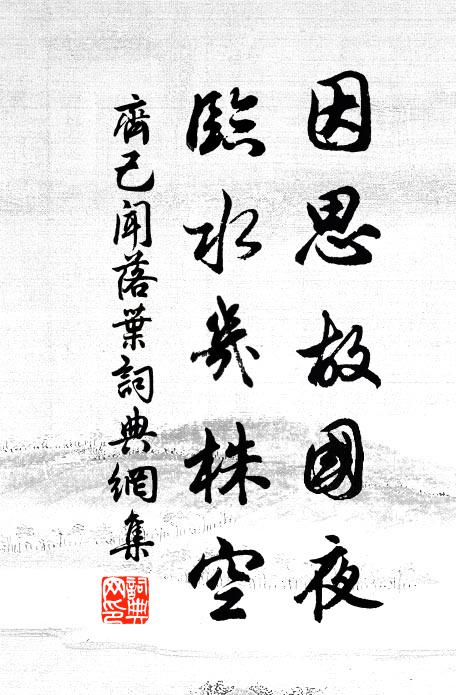 因思故國夜
臨水幾株空
齊己聞落葉詞典網集
詞典
网印